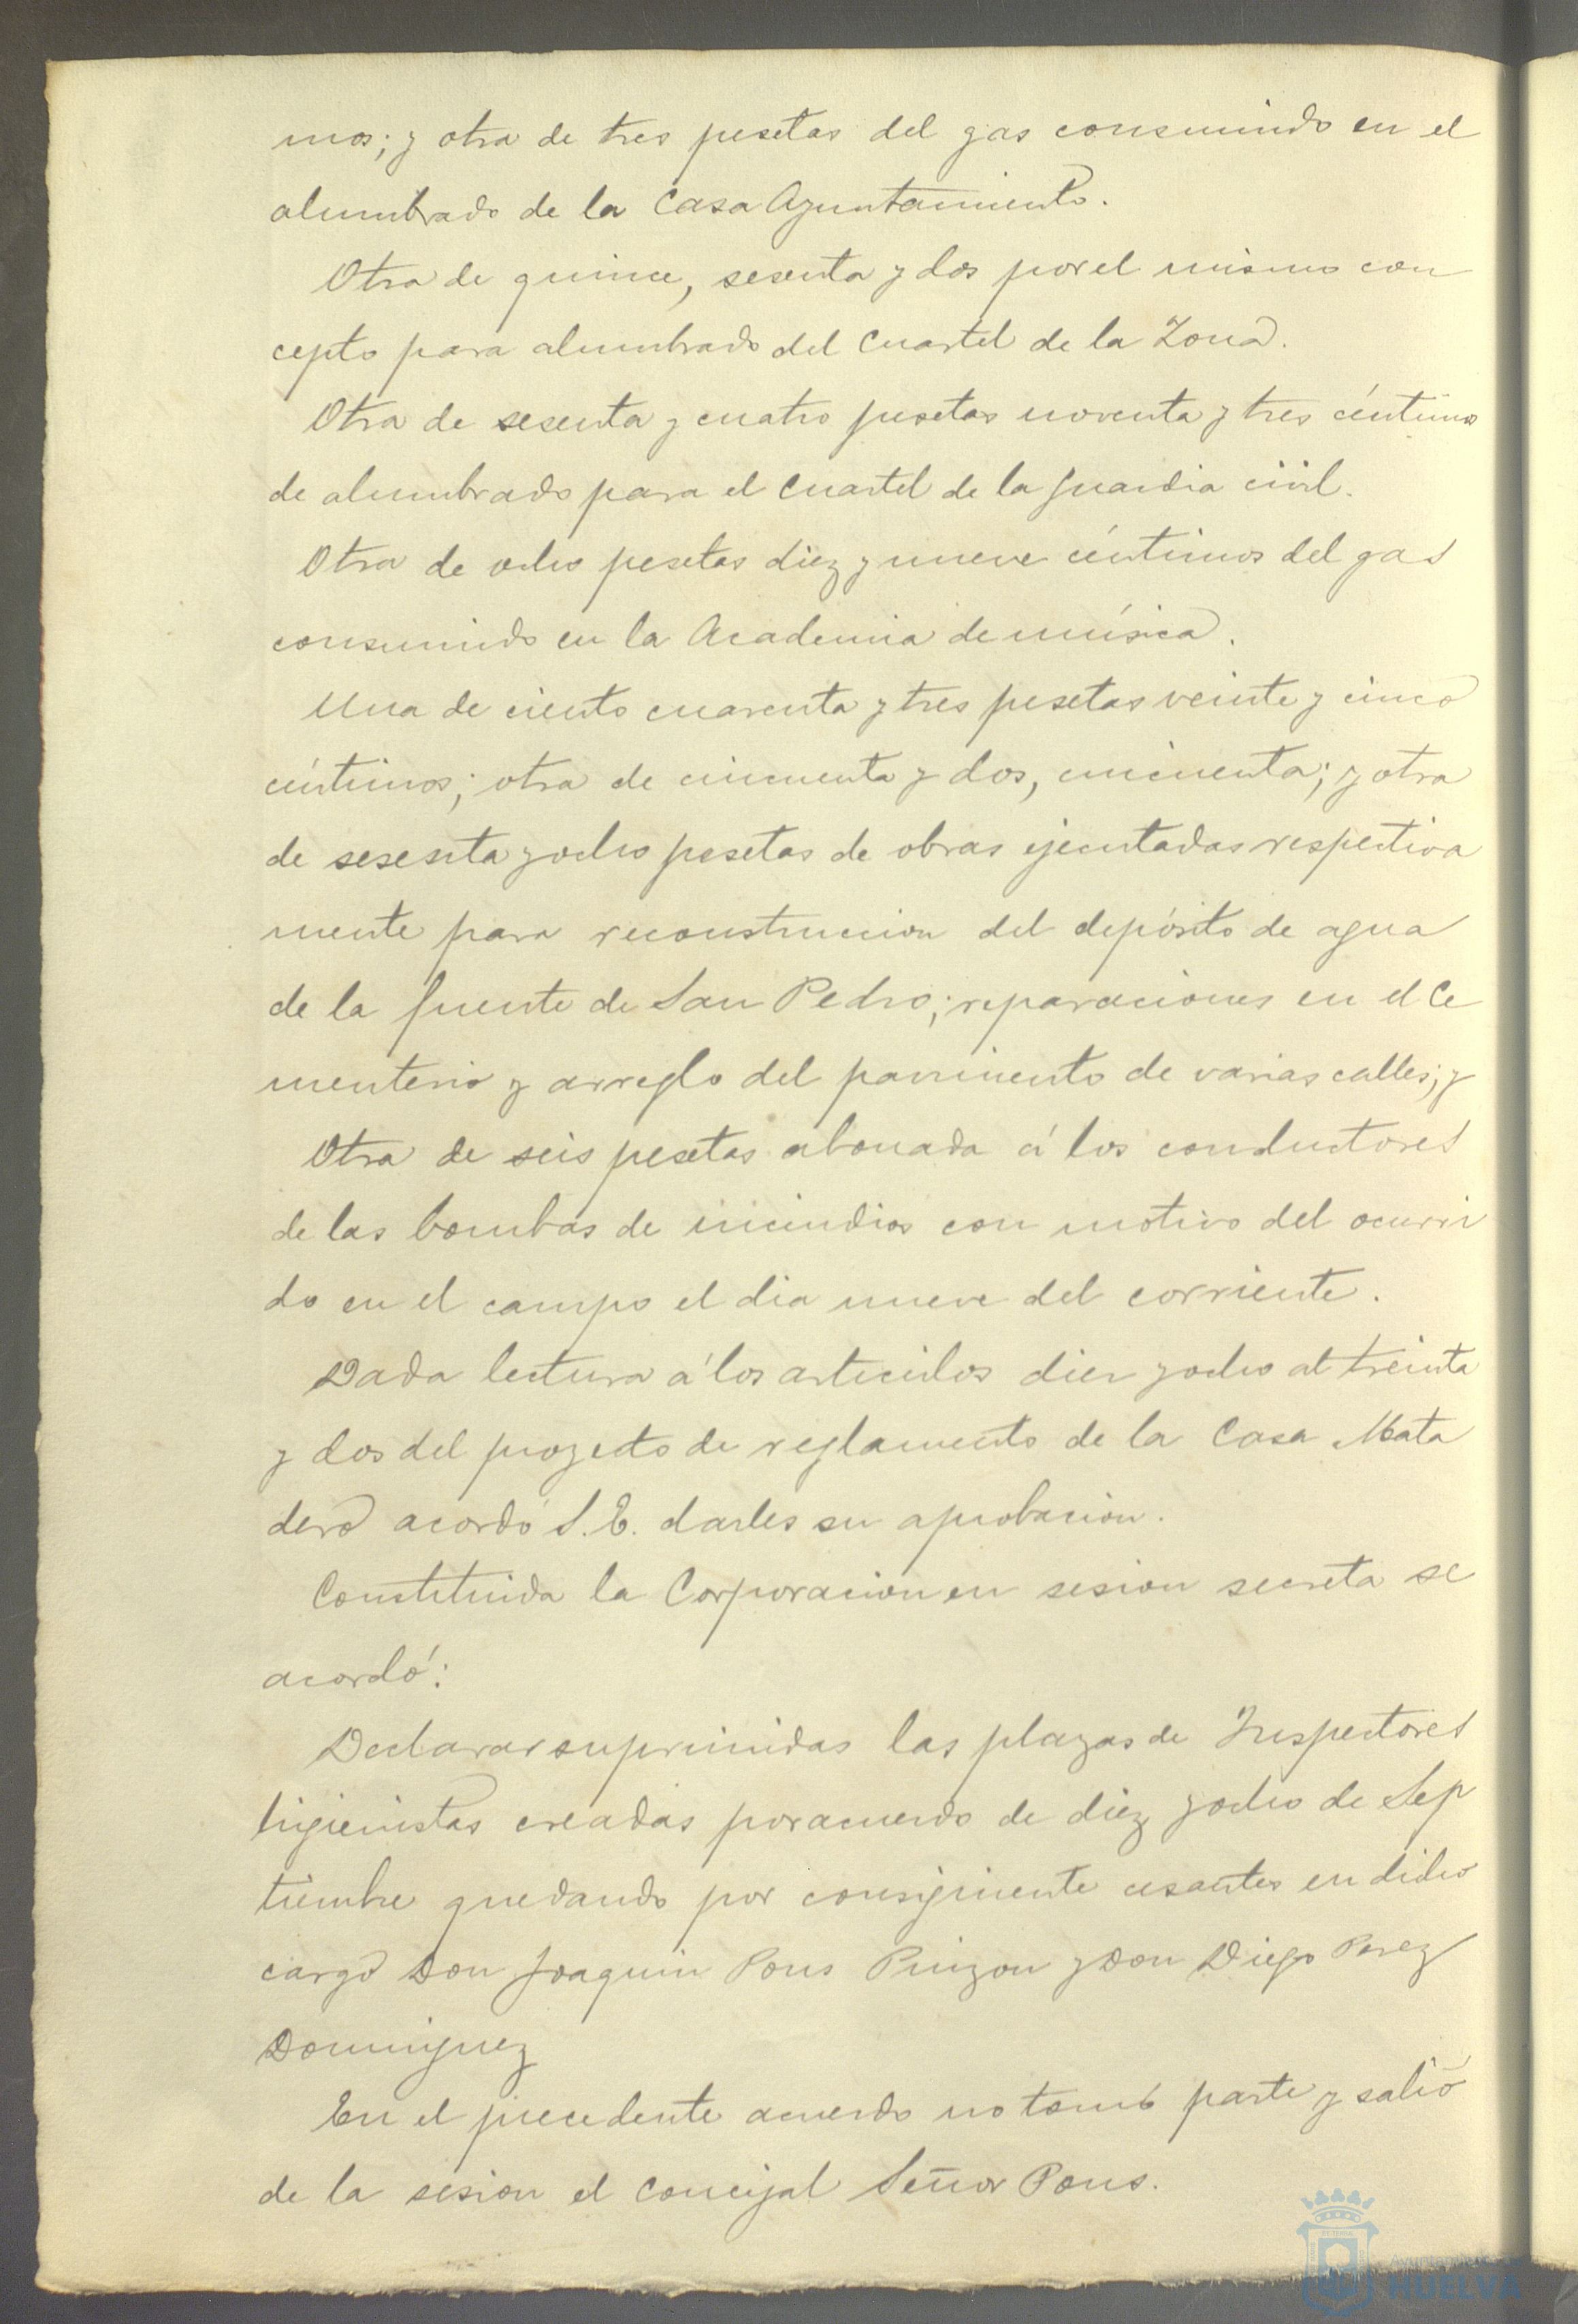 mos; y otra de tres pesetas del gas consumido en el
alumbrado de la Casa Ayuntamiento.
Otra de quince, sesenta y dos por el mismo con
cepto para alumbrado del Cuartel de la Zona.
Otra de sesenta y cuatro pesetas noventa y tres céntimos
de alumbrado para el Cuartel de la Guardia civil.
Otra de ocho pesetas diez y nueve céntimos del gas
consumido en la Academia de música.
Una de ciento cuarenta y tres pesetas veinte y cinco
céntimos; otra de cincuenta y dos, cincuenta; y otra
de sesenta y ocho pesetas de obras ejecutadas respectiva
mente para reconstruccion del depósito de agua
de la fuente de San Pedro; reparaciones en el Ce
menterio y arreglo del pavimento de varias calles; y
Otra de seis pesetas abonada á los conductores
de las bombas de incendios con motivo del ocurri
do en el campo el dia nueve del corriente.
Dada lectura á los articulos diez y ocho al treinta
y dos del proyecto de reglamento de la Casa Mata
dero acordó S.E. darles su aprobacion.
Constituida la Corporacion en sesion secreta se
acordó:
Declarar suprimidas las plazas de Inspectores
higienistas creadas por acuerdo de diez y ocho de Sep
tiembre quedando por consiguiente cesantes en dicho
cargo Don Joaquin Pons Pinzon y Don Diego Perez
Dominguez
En el precedente acuerdo no tomó parte y salió
de la sesion el Concejal Señor Pons.
HUELVA